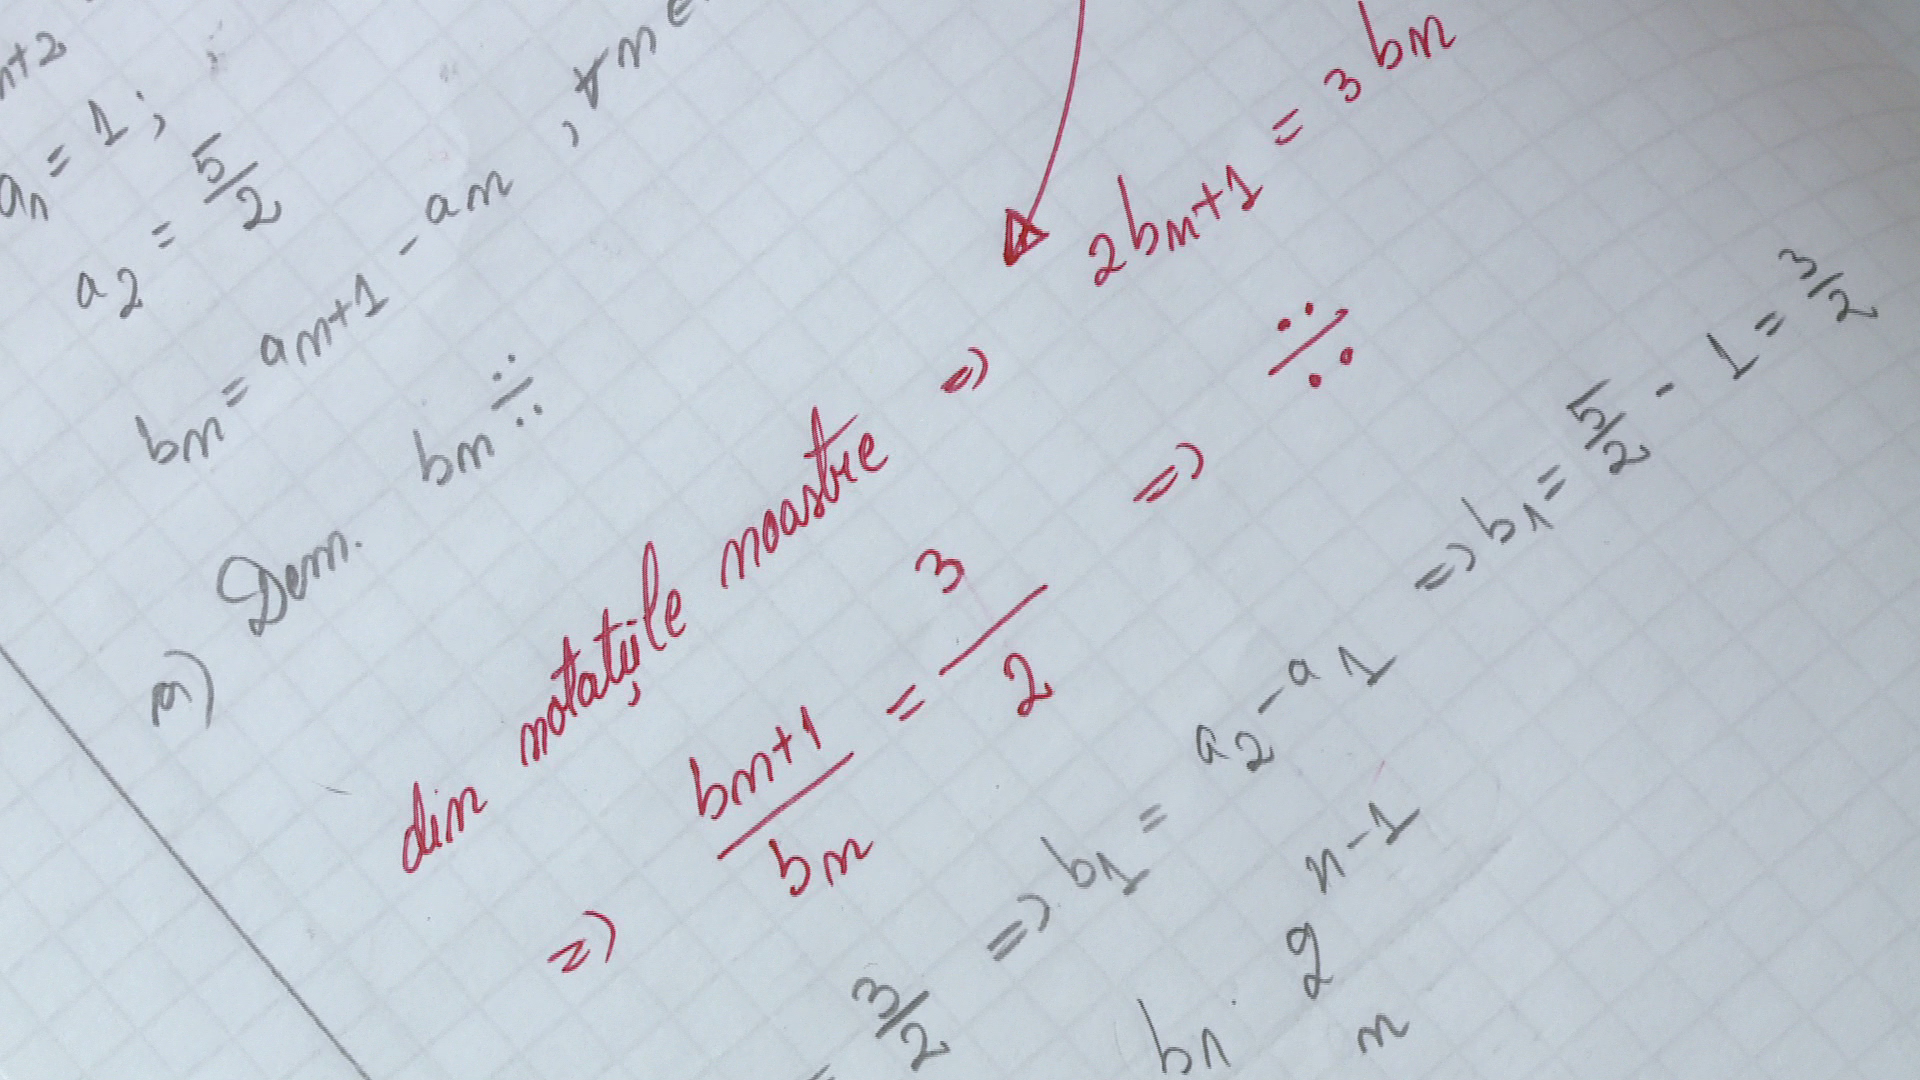 n+2
a1 = 1;
a2 = 5/2
bn = an+1 - an , ∀n∈
a) Dem. bn ÷
2bn+1 = 3bn
din notațiile noastre =>
=> bn+1/bn = 3/2 => ÷
= 3/2 => b1 = a2 - a1 => b1 = 5/2 - 1 = 3/2
b1 · q^n-1
n